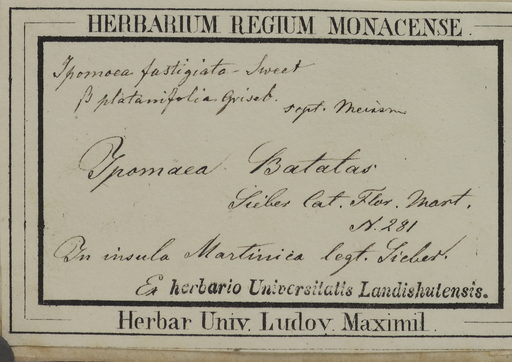 HERBARIUM REGIUM MONACENSE.
Ipomoea fastigiata - Sweet
β platanifolia Griseb.
sept. Meissn
Ipomaea Batatas
Sieber Cat. Flor. Mart.
N. 281
In insula Martinica legt. Sieber.
Ex herbario Universitatis Landishutensis.
Herbar Univ. Ludov. Maximil.